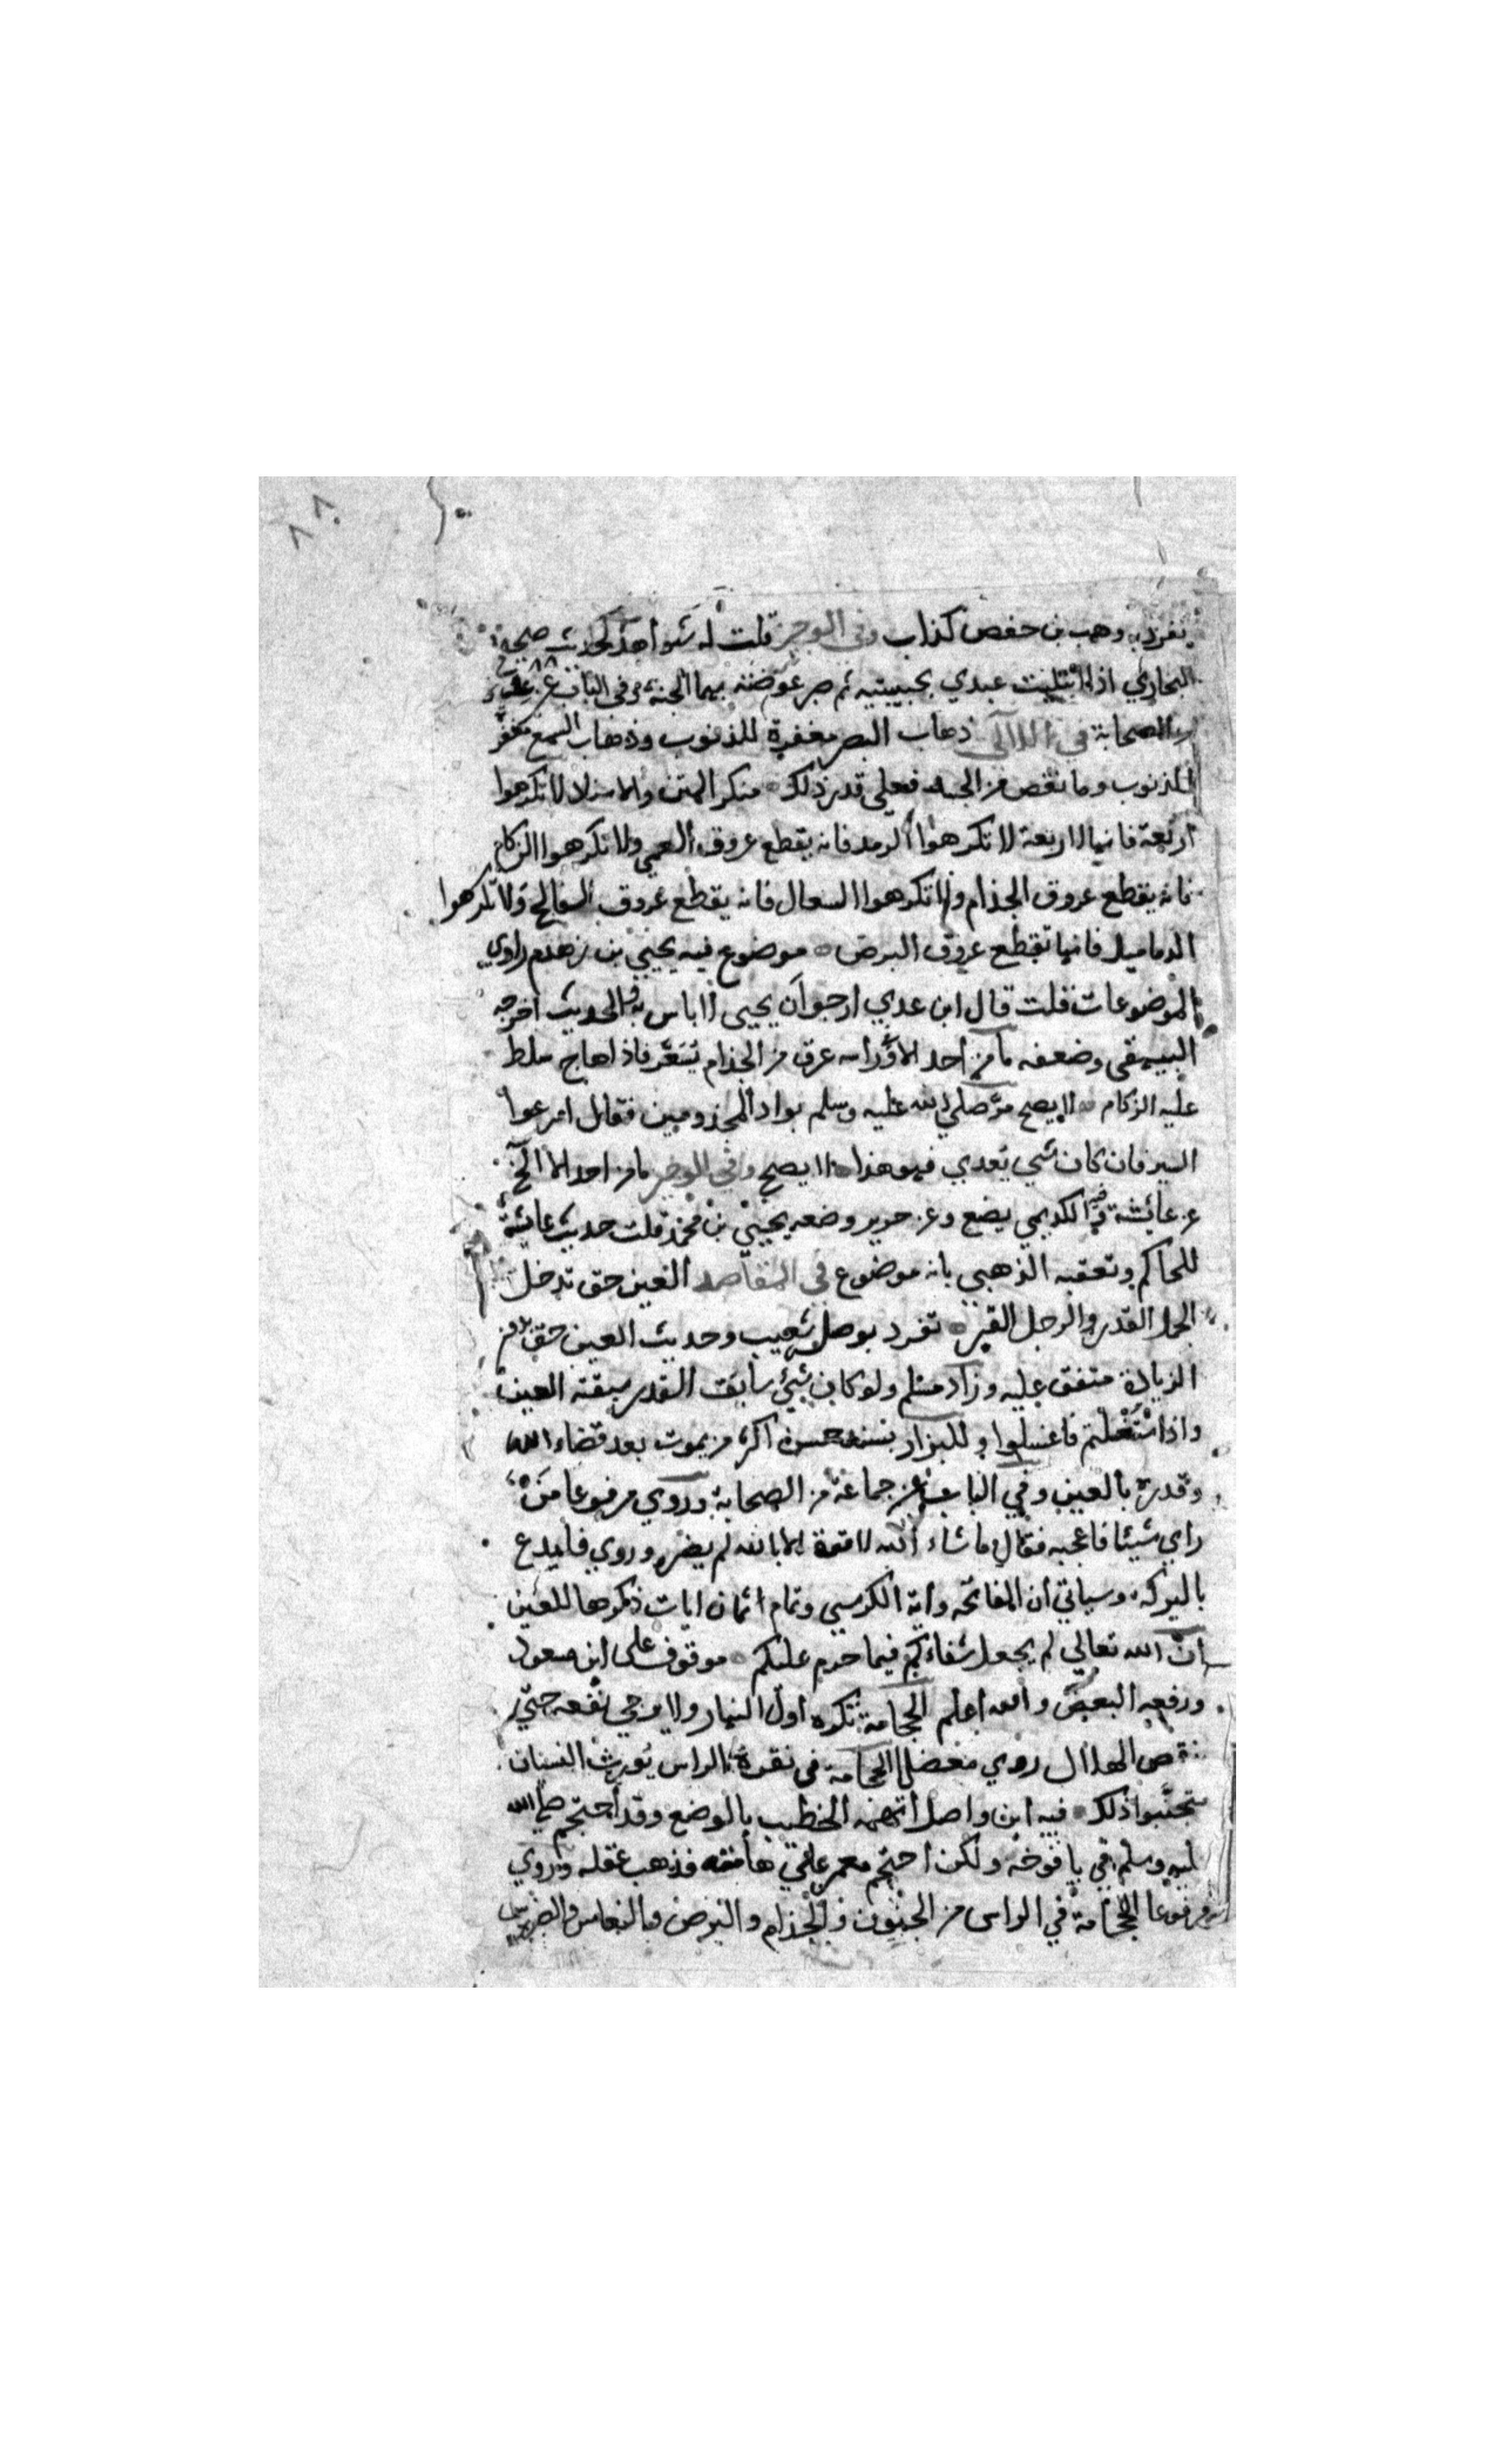 ٨٨
تفرد به وهب بن حفص كذاب وفي الوجيز قلت له شواهد كحديث صححه
البخاري اذا ابتليت عبدي بحبيبتيه ثم صبر عوضته بهما الجنة وفي الباب عن
الصحابة في اللآلي ذهاب البصر مغفرة للذنوب وذهاب السمع مغفرة
للذنوب وما نقص من الجسد فعلى قدر ذلك منكر المتن والاسناد لا تكرهوا
اربعة فانها لاربعة لا تكرهوا الرمد فانه يقطع عروق العمى ولا تكرهوا الزكام
فانه يقطع عروق الجذام ولا تكرهوا السعال فانه يقطع عروق الفالج ولا تكرهوا
الدماميل فانها تقطع عروق البرص موضوع فيه يحيى بن زهدم راوي
الموضوعات قلت قال ابن عدي ارجو ان يحيى لا باس به والحديث اخرجه
البيهقي وضعفه ما من احد الا وفي راسه عرق من الجذام تنعر فاذا هاج سلط
عليه الزكام لا يصح مر صلى الله عليه وسلم بواد المجذومين فقال اسرعوا
السير فان كان شي يعدي فهو هذا لا يصح وفي الوجيز ما من احد الا الخ
عن عائشة فيه الكديمي يضع وعن جرير وضعه يحيى بن محمد قلت حديث عائشة
للحاكم وتعقبه الذهبي بانه موضوع في المقاصد العين حق تدخل
الجمل القدر والرجل القبر تفرد بوصله شعيب وحديث العين حق بدون
الزيادة متفق عليه وزاد مسلم ولو كان شيئ سابق القدر سبقته العين
واذا استغسلتم فاغسلوا وللبزار بسند حسن اكثر من يموت بعد قضاء الله
وقدره بالعين وفي الباب عن جماعة من الصحابة وروي مرفوعا من
راي شيئا فاعجبه فقال ما شاء الله لا قوة الا بالله لم يضره وروي فليدع
بالبركه وسياتي ان الفاتحه واية الكرسي وتمام اثمان ايات ذكروها للعين
ان الله تعالى لم يجعل شفاءكم فيما حرم عليكم موقوف على ابن مسعود
ورفعه البعض والله اعلم الحجامة تكره اول النهار ولا يرجى نفعه حتى
ينقص الهلال روي معضلا الحجامة في نقرة الراس يورث النسيان
فتجنبوا ذلك فيه ابن واصل اتهمه الخطيب بالوضع وقد احتجم صلى الله
عليه وسلم في يافوخه ولكن احتجم معمر على هامته فذهب عقله وروي
مرفوعا الحجامة في الراس من الجنون والجذام والبرص والنعاس والضرس